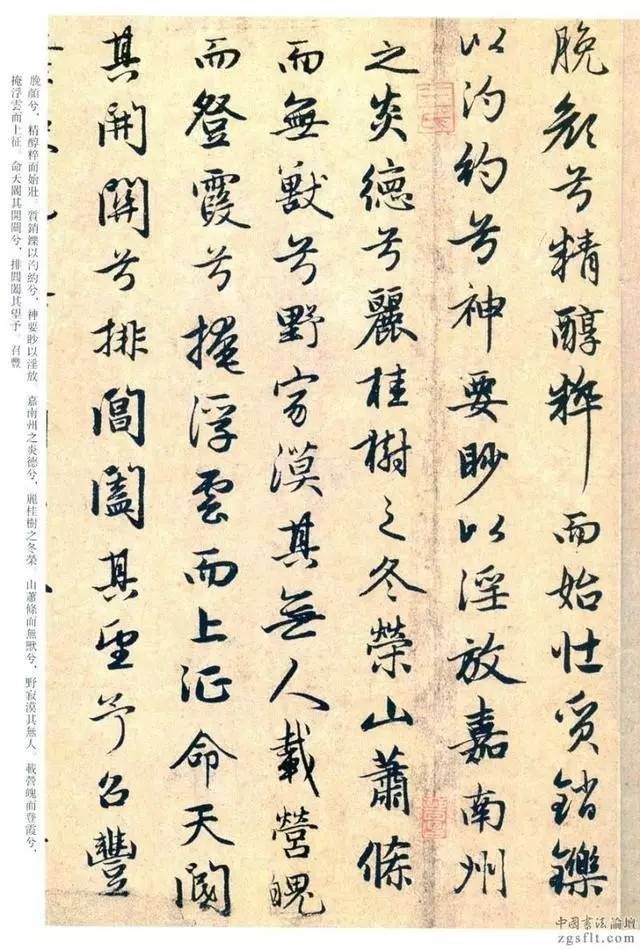 脕顏兮精醇粹而始壯質銷鑠
以汋約兮神要眇以淫放嘉南州
之炎德兮麗桂樹之冬榮山蕭條
而無獸兮野寂漠其無人載營魄
而登霞兮掩浮雲而上征命天閽
其開關兮排閶闔其望予召豐
脕顏兮，精醇粹而始壯。質銷鑠以汋約兮，神要眇以淫放。嘉南州之炎德兮，麗桂樹之冬榮。山蕭條而無獸兮，野寂漠其無人。載營魄而登霞兮，
掩浮雲而上征。命天閽其開關兮，排閶闔其望予。召豐
中國書法論壇
zgsflt.com